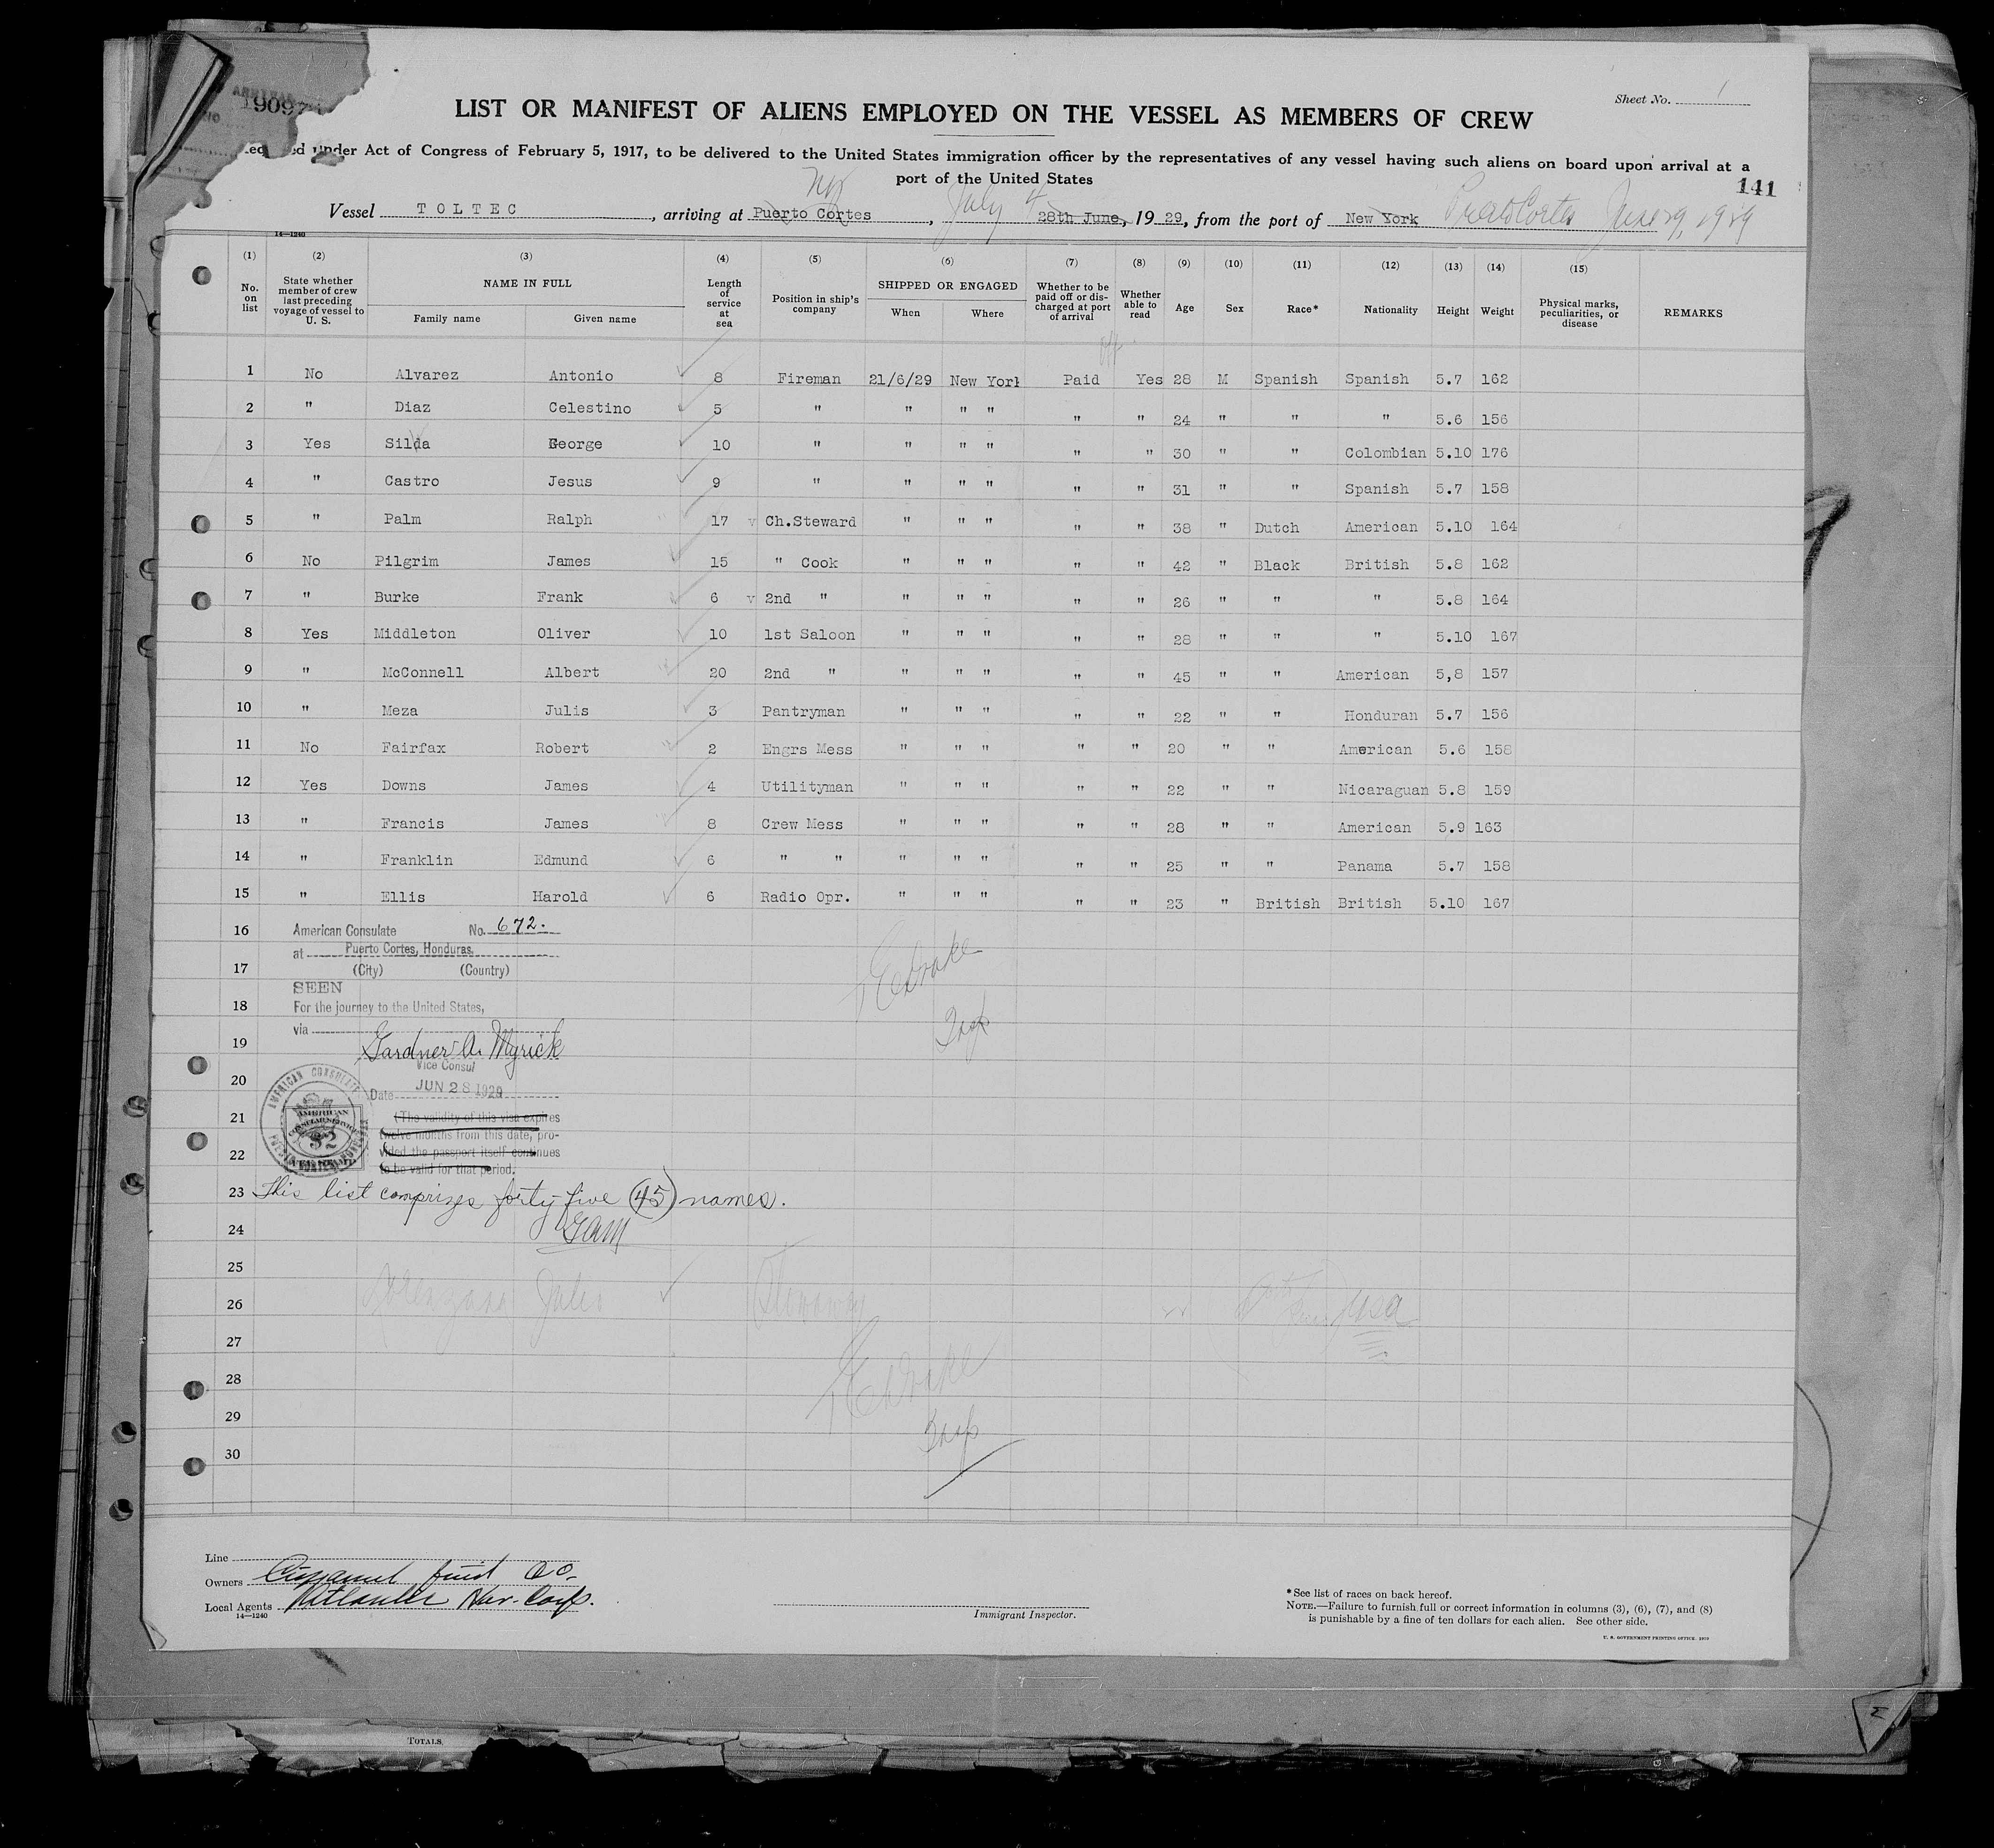 19097
Sheet No. 1
LIST OR MANIFEST OF ALIENS EMPLOYED ON THE VESSEL AS MEMBERS OF CREW
under Act of Congress of February 5, 1917, to be delivered to the United States immigration officer by the representatives of any vessel having such aliens on board upon arrival at a
port of the United States
141
NY July 4 Puerto Cortes June 29, 1929
Vessel TOLTEC, arriving at Puerto Cortes, 28th June, 1929, from the port of New York
14—1240
(1) (2) (3) (4) (5) (6) (7) (8) (9) (10) (11) (12) (13) (14) (15)
No. on list State whether member of crew last preceding voyage of vessel to U. S. NAME IN FULL Family name Given name Length of service at sea Position in ship's company SHIPPED OR ENGAGED When Where Whether to be paid off or discharged at port of arrival Whether able to read Age Sex Race* Nationality Height Weight Physical marks, peculiarities, or disease REMARKS
off
1 No Alvarez Antonio 8 Fireman 21/6/29 New York Paid Yes 28 M Spanish Spanish 5.7 162
2 " Diaz Celestino 5 " " " " " " 24 " " " 5.6 156
3 Yes Silda George 10 " " " " " " 30 " " Colombian 5.10 176
4 " Castro Jesus 9 " " " " " " 31 " " Spanish 5.7 158
5 " Palm Ralph 17 Ch.Steward " " " " " 38 " Dutch American 5.10 164
6 No Pilgrim James 15 " Cook " " " " " 42 " Black British 5.8 162
7 " Burke Frank 6 2nd " " " " " " 26 " " " 5.8 164
8 Yes Middleton Oliver 10 1st Saloon " " " " " 28 " " " 5.10 167
9 " McConnell Albert 20 2nd " " " " " " 45 " " American 5,8 157
10 " Meza Julis 3 Pantryman " " " " " 22 " " Honduran 5.7 156
11 No Fairfax Robert 2 Engrs Mess " " " " " 20 " " American 5.6 158
12 Yes Downs James 4 Utilityman " " " " " 22 " " Nicaraguan 5.8 159
13 " Francis James 8 Crew Mess " " " " " 28 " " American 5.9 163
14 " Franklin Edmund 6 " " " " " " " 25 " " Panama 5.7 158
15 " Ellis Harold 6 Radio Opr. " " " " " 23 " British British 5.10 167
16 American Consulate No. 672.
at Puerto Cortes, Honduras.
17 (City) (Country)
SEEN
18 For the journey to the United States,
via
19 Gardner A. Myrick
Vice Consul
20 Date JUN 28 1929
21 (The validity of this visa expires
twelve months from this date, pro-
22 vided the passport itself continues
to be valid for that period.
AMERICAN CONSULATE
AMERICAN CONSULAR SERVICE
$2
FEE STAMP
23 This list comprizes forty-five (45) names.
24 GAM
25
26 Julio Stowaway USA
27
28
29 Insp
30
Line
Owners Cuyamel Fruit Co.
Local Agents Nav. Corp.
14—1240
Immigrant Inspector.
*See list of races on back hereof.
NOTE.—Failure to furnish full or correct information in columns (3), (6), (7), and (8)
is punishable by a fine of ten dollars for each alien. See other side.
TOTALS